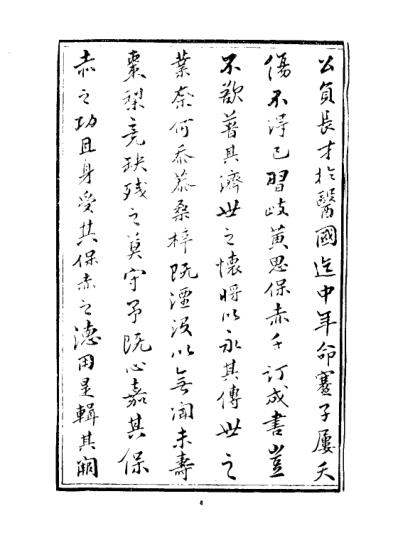 公負長才於醫國迄中年命蹇子屢夭
傷不得已習歧黃思保赤手訂成書豈
不欲普其濟世之懷將以永其傳世之
業奈何恭桑梓既湮沒以無聞未壽
棗梨竟缺殘之莫守予既心嘉其保
赤之功且身受其保赤之德用是輯其闕
4